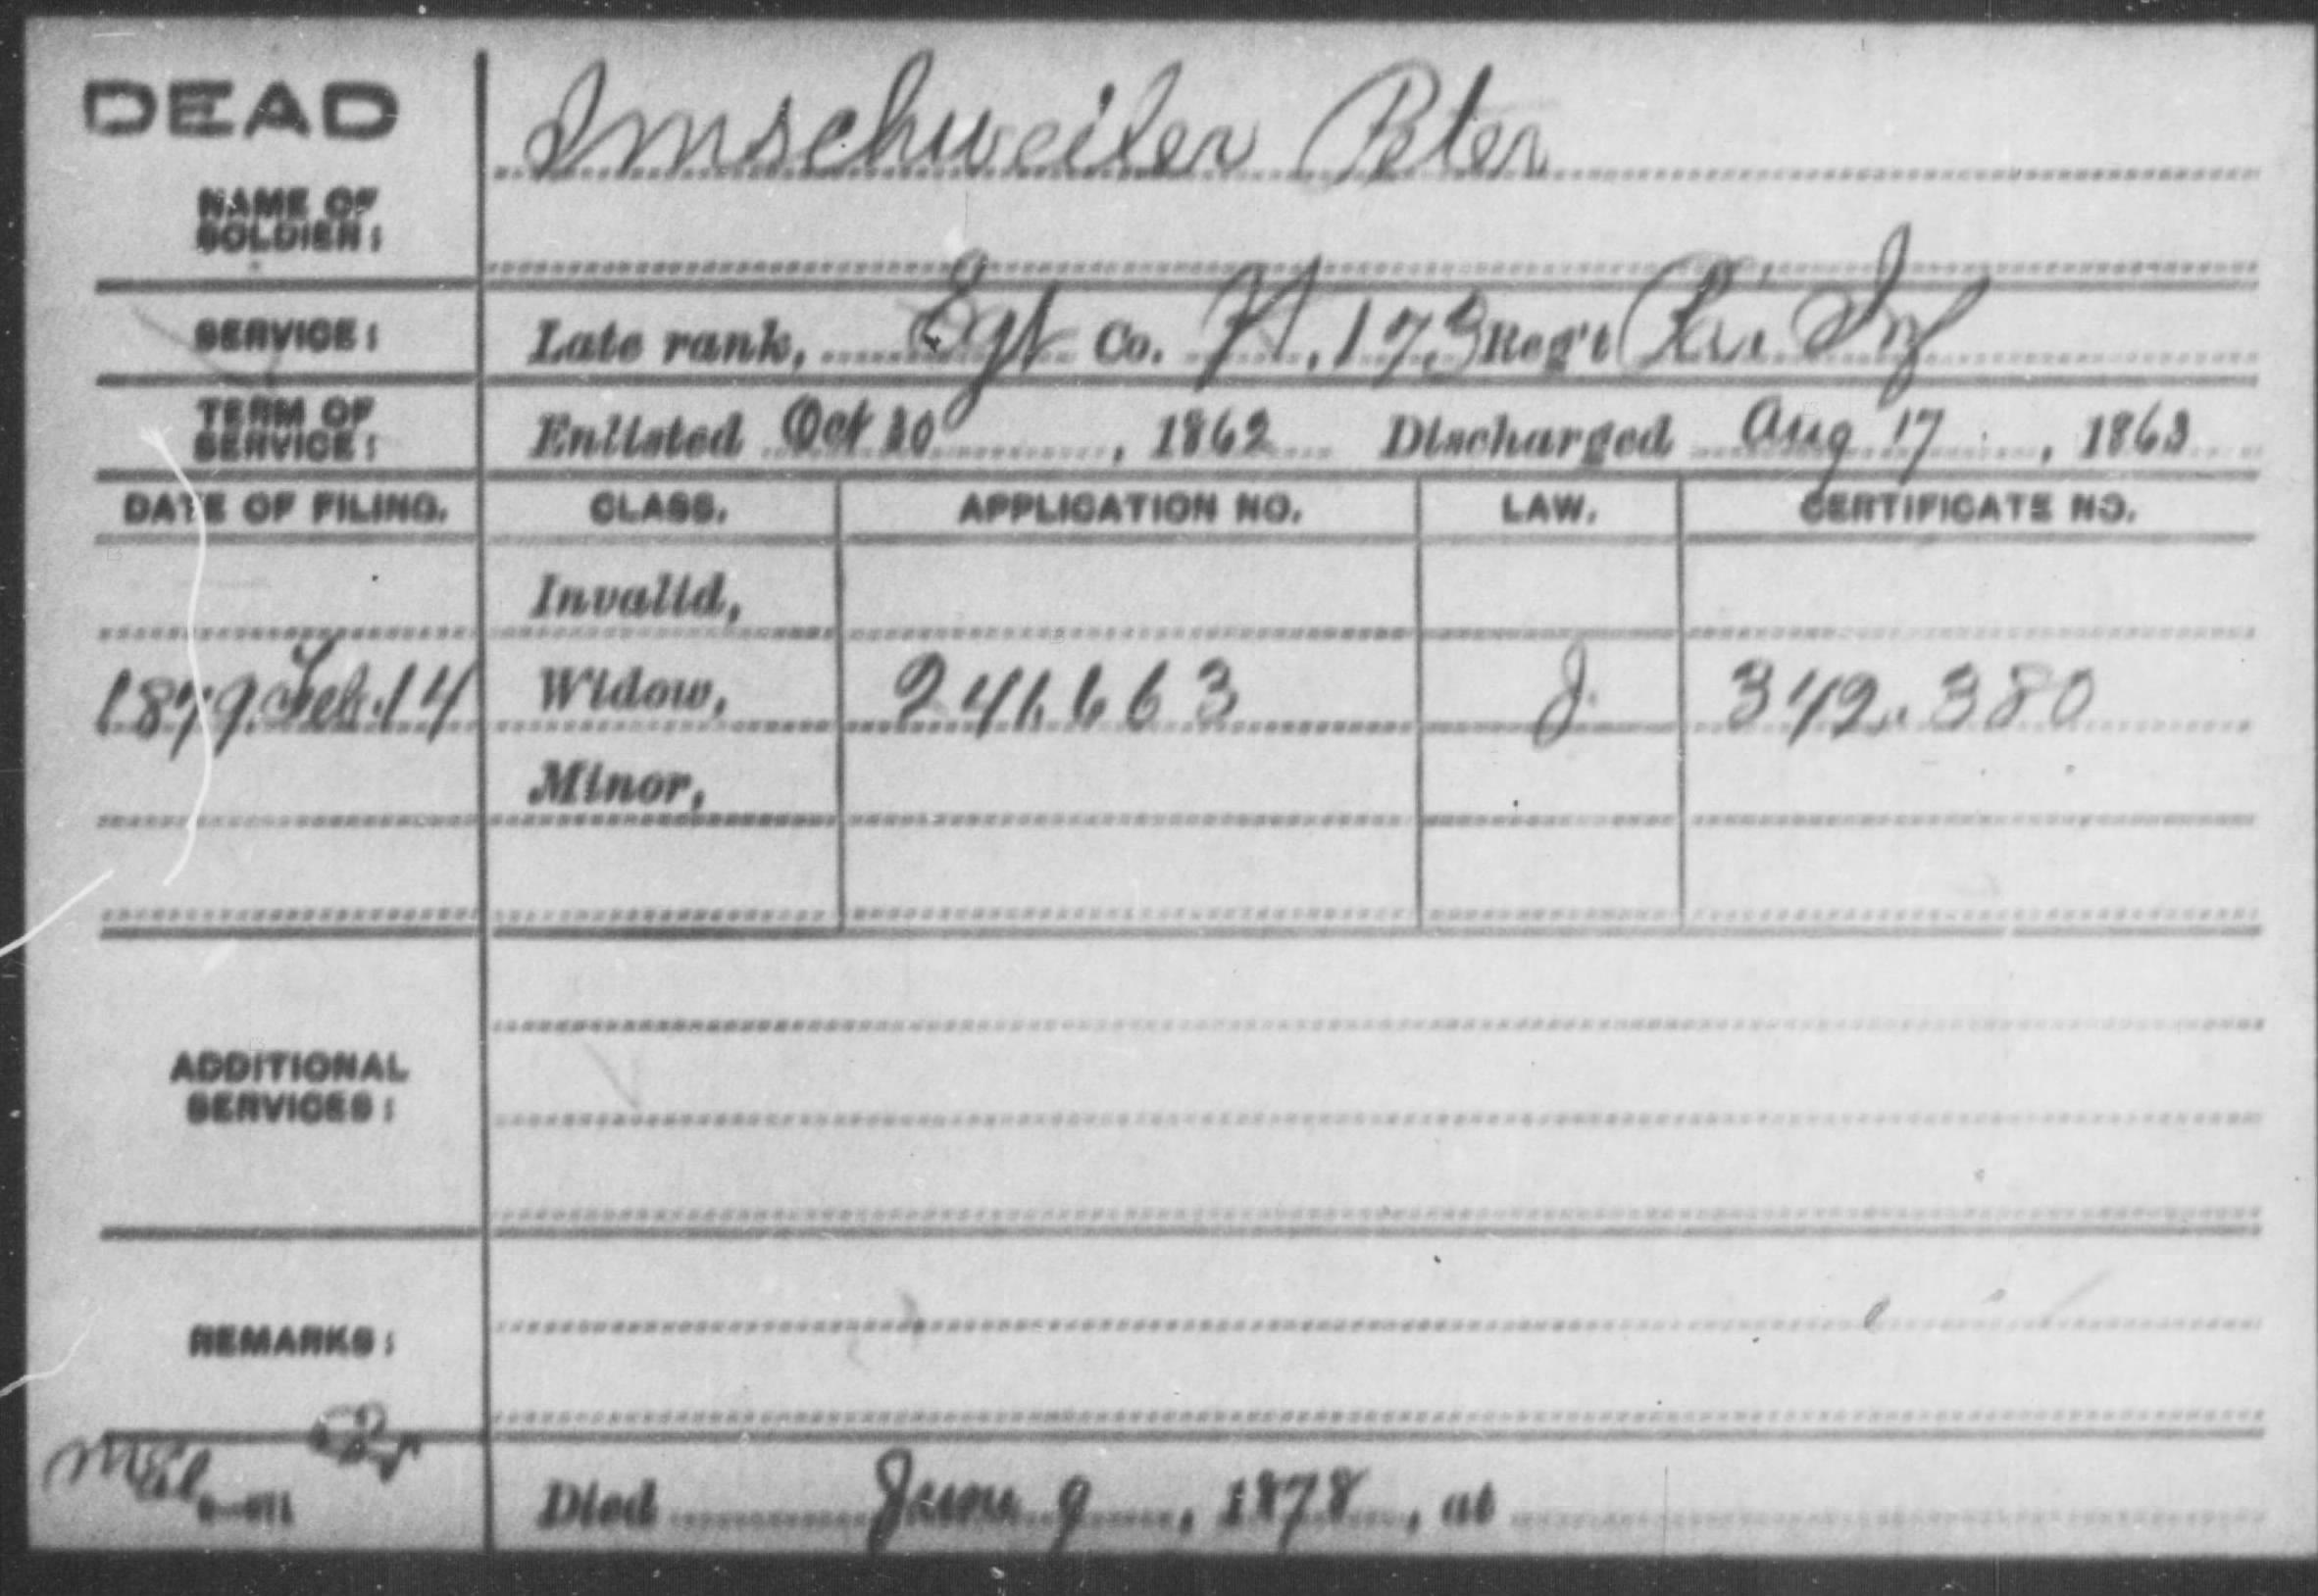 DEAD
Imschweiler Peter
NAME OF
SOLDIER:
SERVICE: Late rank, Sgt Co. H, 173 Reg't Pa. Inf
TERM OF
SERVICE: Enlisted Oct 30, 1862 Discharged Aug 17, 1863
DATE OF FILING. CLASS. APPLICATION NO. LAW. CERTIFICATE NO.
Invalid,
1879. Feb. 14 Widow, 241.663 J. 342.380
Minor,
ADDITIONAL
SERVICES:
REMARKS:
Died June 9, 1878, at